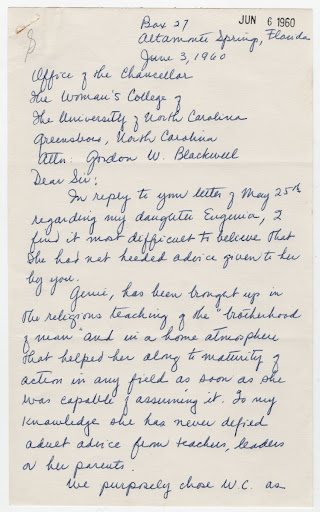 Box 27
JUN 6 1960
Altamonte Springs, Florida
June 3, 1960
Office of the Chancellor
The Woman's College of
The University of North Carolina
Greensboro, North Carolina
Attn: Gordon W. Blackwell
Dear Sir:
In reply to your letter of May 25th
regarding my daughter Eugenia, I
find it most difficult to believe that
she had not heeded advice given to her
by you.
Genie, has been brought up in
the religious teaching of the "brotherhood
of man" and in a home atmosphere
that helped her along to maturity of
action in any field as soon as she
was capable of assuming it. To my
knowledge she has never defied
adult advice from teachers, leaders
or her parents.
We purposely chose W.C. as